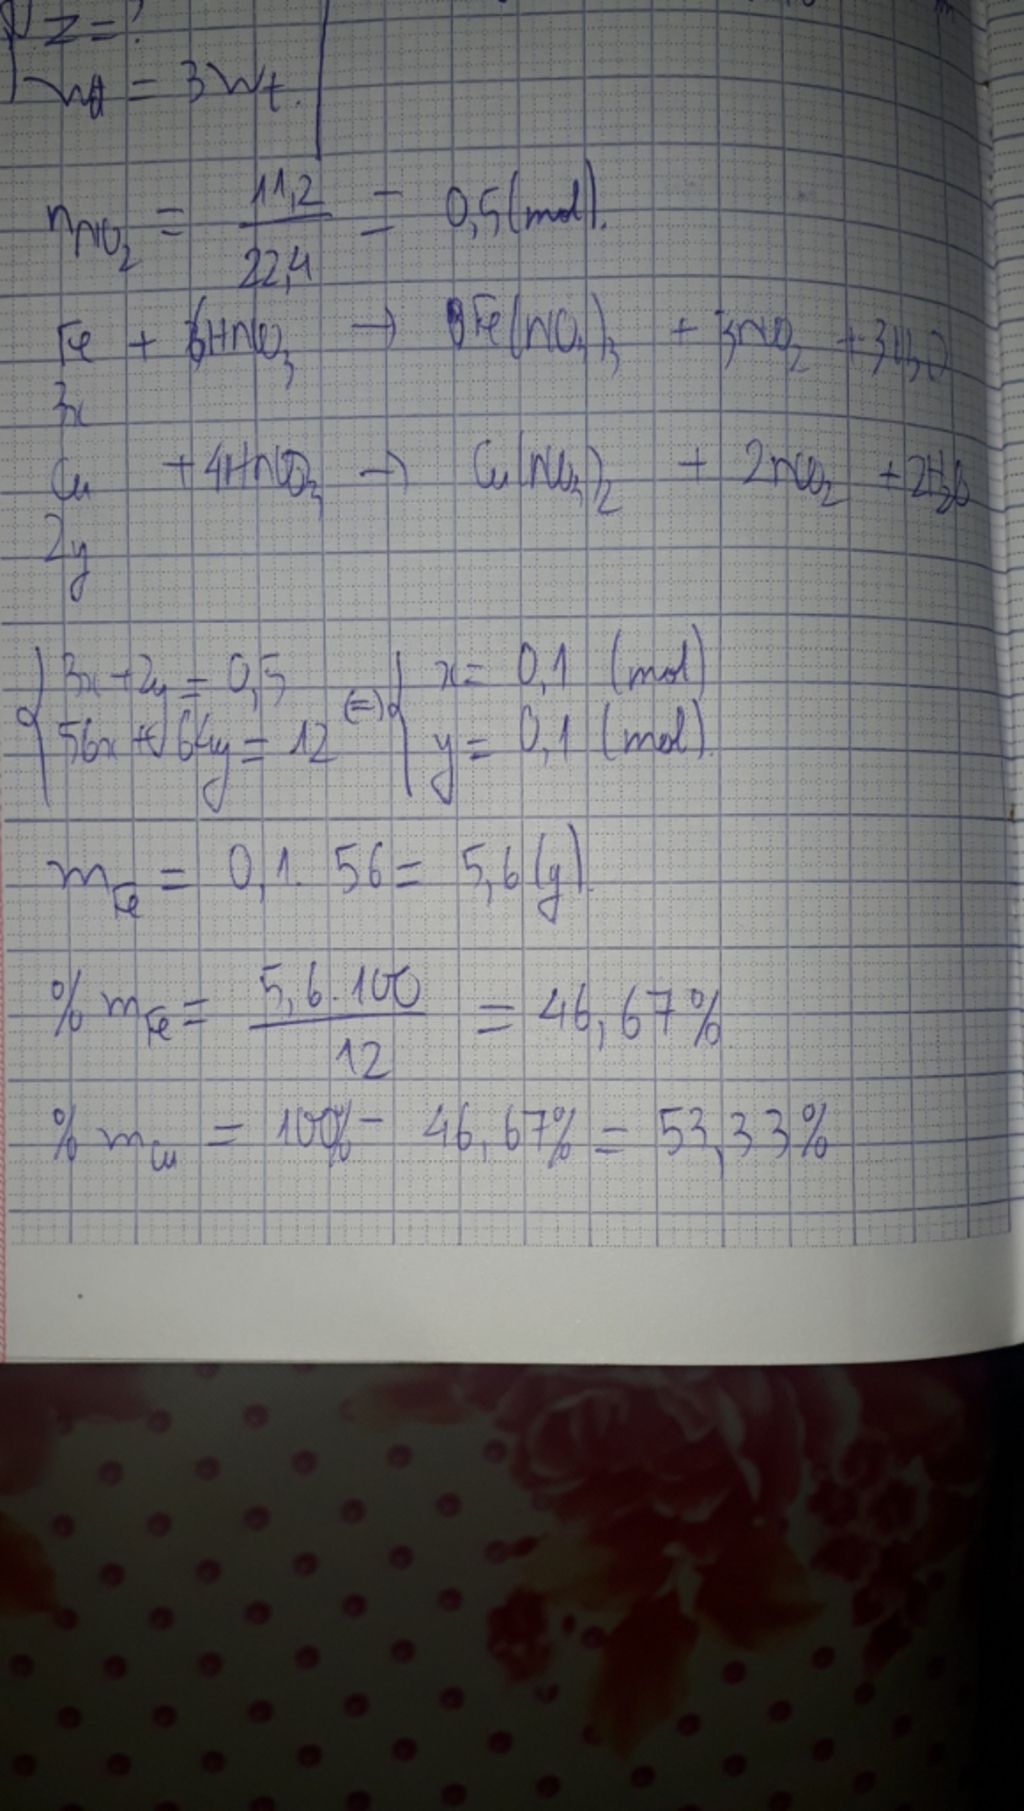 Z = ?
= 3Wt.
nNO₂ = 11,2 / 22,4 = 0,5 (mol).
Fe + 6HNO₃ → Fe(NO₃)₃ + 3NO₂ + 3H₂O
3x
Cu + 4HNO₃ → Cu(NO₃)₂ + 2NO₂ + 2H₂O
2y
{ 3x + 2y = 0,5 (=) { x = 0,1 (mol)
56x + 64y = 12 y = 0,1 (mol).
mFe = 0,1. 56 = 5,6 (g).
% mFe = 5,6.100 / 12 = 46,67%
% mCu = 100% - 46,67% = 53,33%